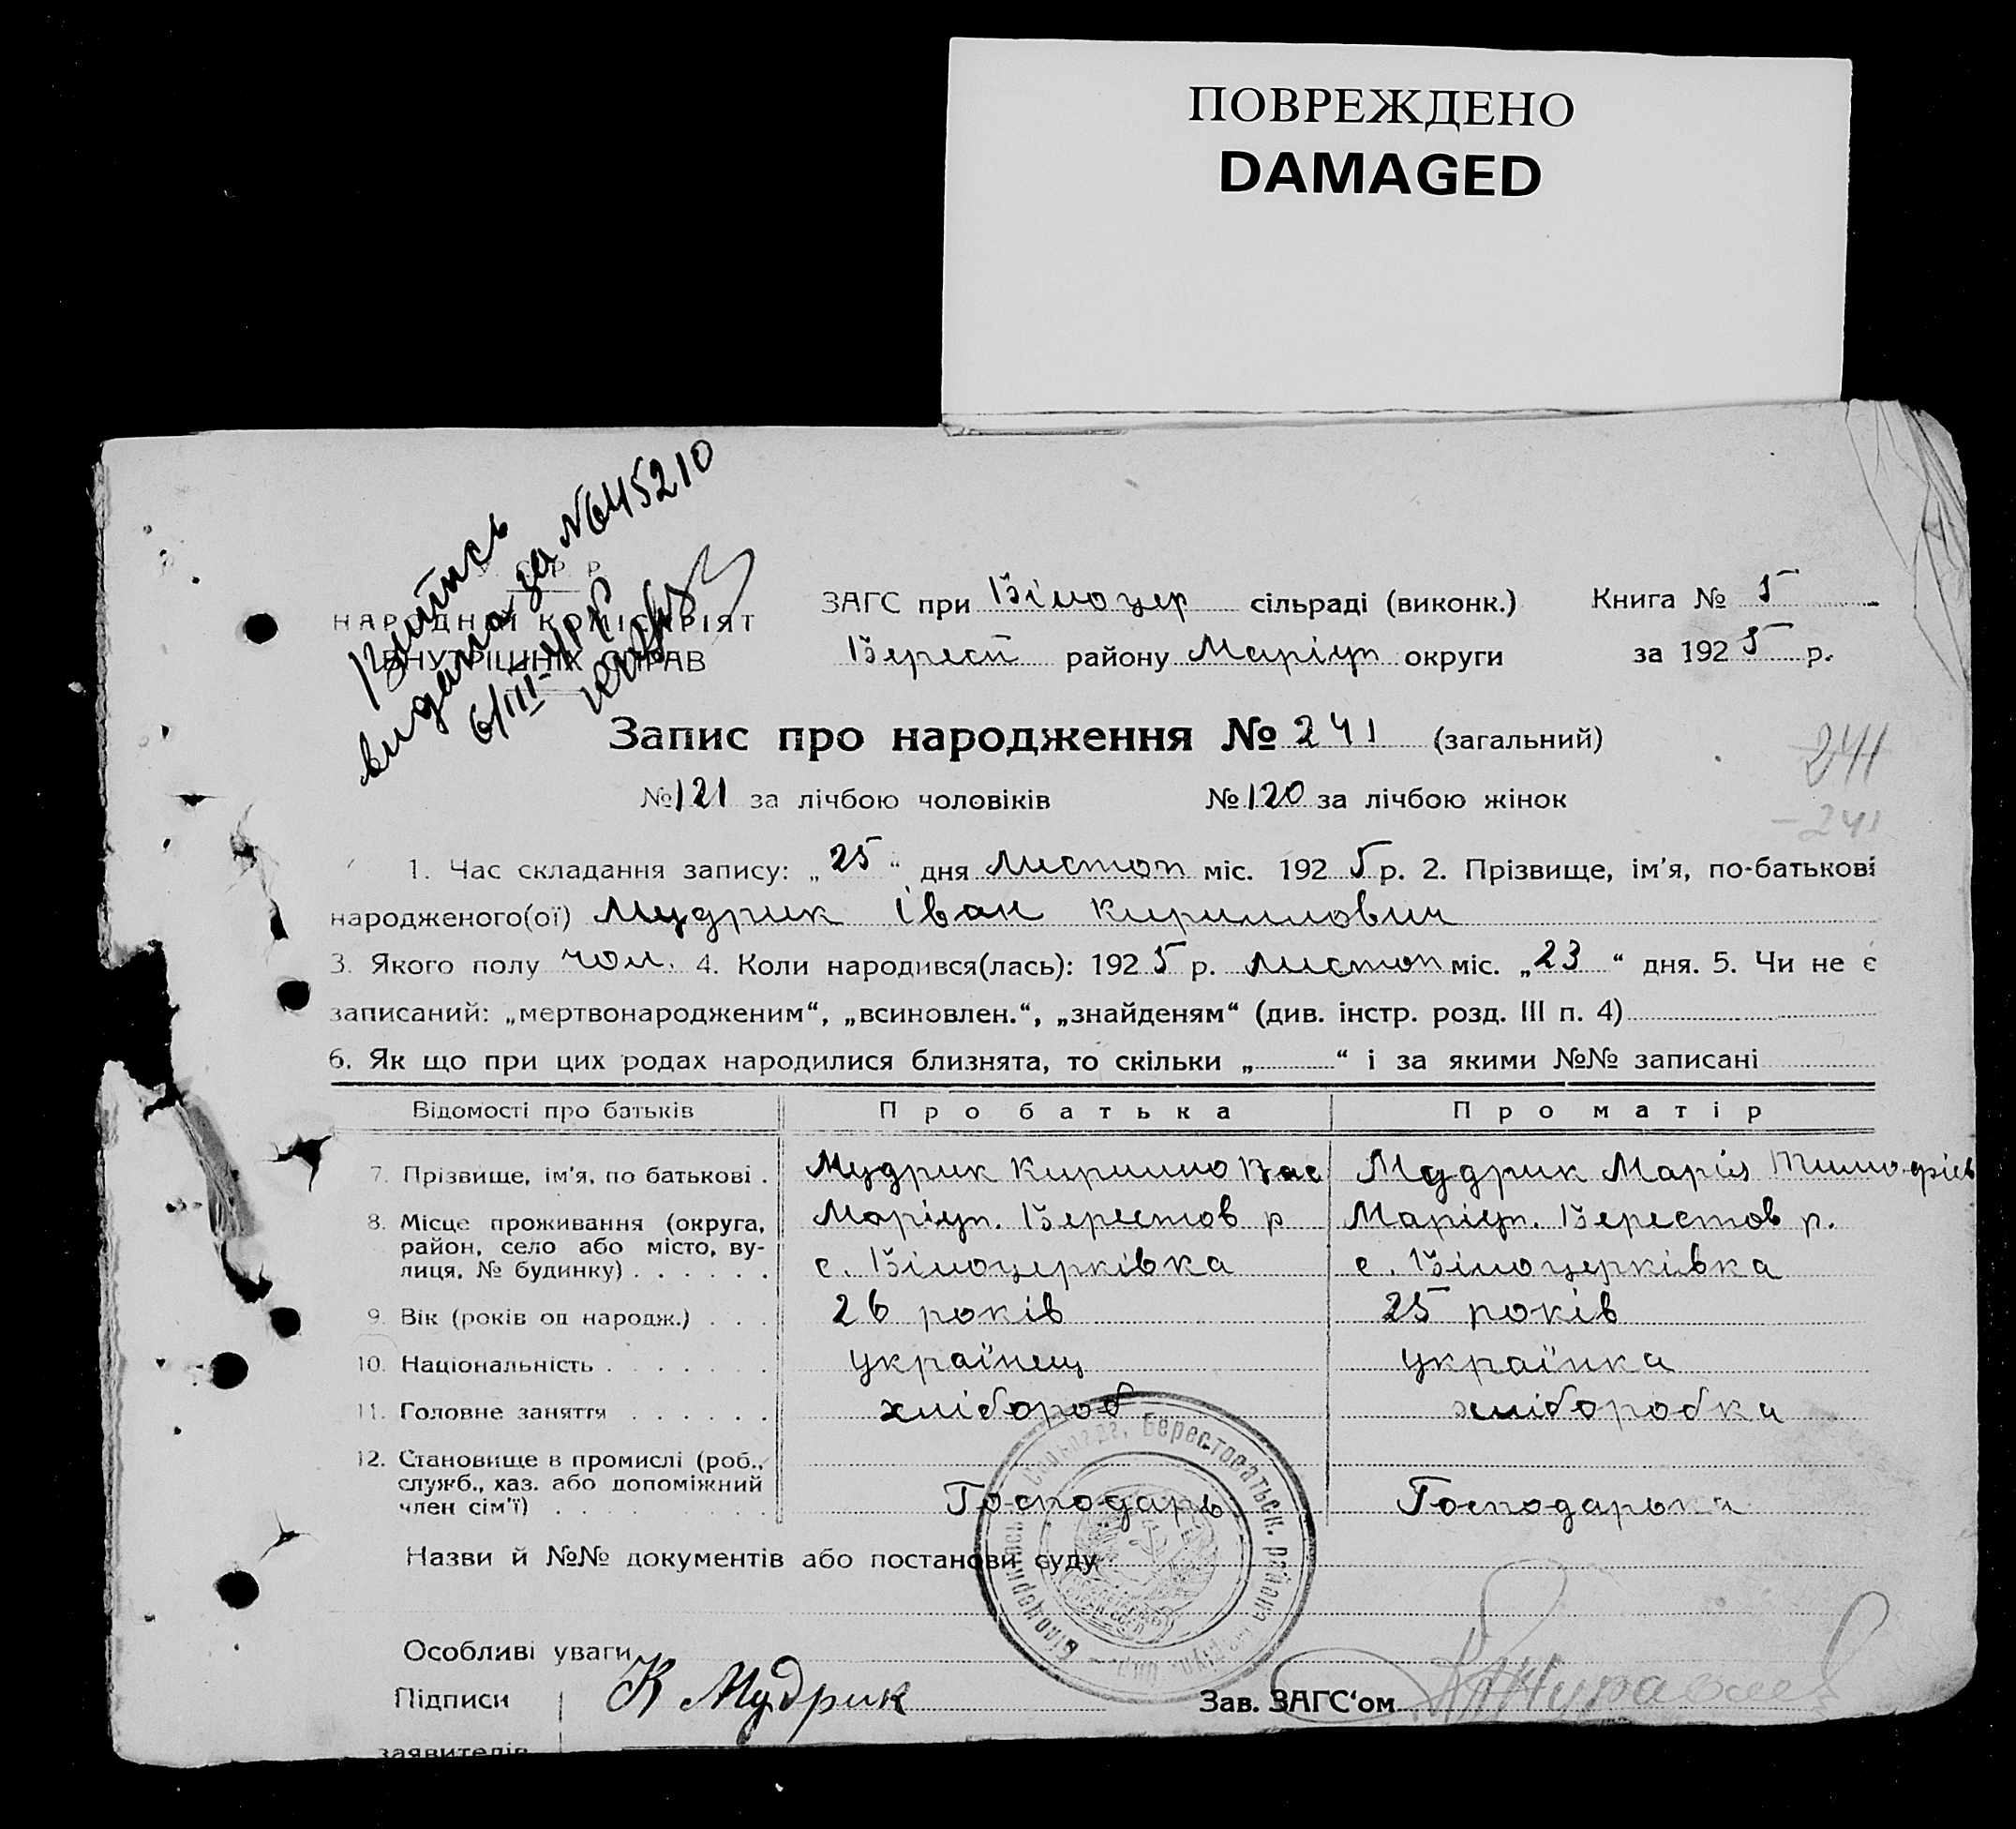 ПОВРЕЖДЕНО
DAMAGED
Витись
видана за №645210
6/III-41 р
С Р Р
НАРОДНІЙ КОМІСАРІЯТ
ВНУТРІШНІХ СПРАВ
ЗАГС при Білоцер сільраді (виконк.) Книга № 5
Берест району Маріуп округи за 1925 р.
Запис про народження № 241 (загальний)
241
№ 121 за лічбою чоловіків № 120 за лічбою жінок
-241
1. Час складання запису: „25“ дня Листоп міс. 1925 р. 2. Прізвище, ім'я, по-батькові
народженого(ої) Мудрик Іван Кириллович
3. Якого полу чол. 4. Коли народився(лась): 1925 р. листоп міс. „23“ дня. 5. Чи не є
записаний: „мертвонародженим“, „всиновлен.“, „знайденям“ (див. інстр. розд. III п. 4)
6. Як що при цих родах народилися близнята, то скільки „ “ і за якими №№ записані
Відомості про батьків Про батька Про матір
7. Прізвище, ім'я, по батькові . Мудрик Кирилло Вас Мудрик Марія Тимофієв
8. Місце проживання (округа, Маріуп. Берестов р Маріуп. Берестов р.
район, село або місто, ву-
лиця, № будинку) . . . . . . с. Білоцерківка с. Білоцерківка
9. Вік (років од народж.) . . . 26 років 25 років
10. Національність . . . . . . . українец українка
11. Головне заняття . . . . . . хлібороб хліборобка
12. Становище в промислі (роб.,
служб., хаз. або допоміжний
член сім'ї) . . . . . . . . . Господарь Господарька
Білоцерківсь Сільрада, Берестоватьск. района Маріуп. окр.
Назви й №№ документів або постанови суду
Особливі уваги
Підписи К Мудрик Зав. ЗАГС‘ом Журавлев
заявителів